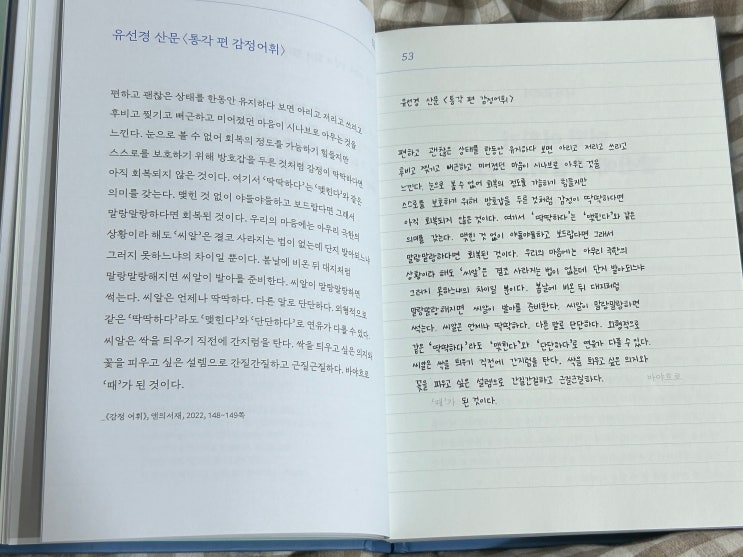 유선경 산문 〈통각 편 감정어휘〉
편하고 괜찮은 상태를 한동안 유지하다 보면 아리고 저리고 쓰리고
후비고 찢기고 뻐근하고 미어졌던 마음이 시나브로 아무는 것을
느낀다. 눈으로 볼 수 없어 회복의 정도를 가늠하기 힘들지만
스스로를 보호하기 위해 방호갑을 두른 것처럼 감정이 딱딱하다면
아직 회복되지 않은 것이다. 여기서 ‘딱딱하다’는 ‘맺힌다’와 같은
의미를 갖는다. 맺힌 것 없이 야들야들하고 보드랍다면 그래서
말랑말랑하다면 회복된 것이다. 우리의 마음에는 아무리 극한의
상황이라 해도 ‘씨알’은 결코 사라지는 법이 없는데 단지 발아되느냐
그러지 못하느냐의 차이일 뿐이다. 봄날에 비온 뒤 대지처럼
말랑말랑해지면 씨알이 발아를 준비한다. 씨알이 말랑말랑하면
썩는다. 씨알은 언제나 딱딱하다. 다른 말로 단단하다. 외형적으로
같은 ‘딱딱하다’라도 ‘맺힌다’와 ‘단단하다’로 연유가 다를 수 있다.
씨알은 싹을 틔우기 직전에 간지럼을 탄다. 싹을 틔우고 싶은 의지와
꽃을 피우고 싶은 설렘으로 간질간질하고 근질근질하다. 바야흐로
‘때’가 된 것이다.
_《감정 어휘》, 앤의서재, 2022, 148~149쪽
53
유선경 산문 〈통각 편 감정어휘〉
편하고 괜찮은 상태를 한동안 유지하다 보면 아리고 저리고 쓰리고
후비고 찢기고 뻐근하고 미어졌던 마음이 시나브로 아무는 것을
느낀다. 눈으로 볼 수 없어 회복의 정도를 가늠하기 힘들지만
스스로를 보호하기 위해 방호갑을 두른 것처럼 감정이 딱딱하다면
아직 회복되지 않은 것이다. 여기서 ‘딱딱하다’는 ‘맺힌다’와 같은
의미를 갖는다. 맺힌 것 없이 야들야들하고 보드랍다면 그래서
말랑말랑하다면 회복된 것이다. 우리의 마음에는 아무리 극한의
상황이라 해도 ‘씨알’은 결코 사라지는 법이 없는데 단지 발아되느냐
그러지 못하느냐의 차이일 뿐이다. 봄날에 비온 뒤 대지처럼
말랑말랑해지면 씨알이 발아를 준비한다. 씨알이 말랑말랑하면
썩는다. 씨알은 언제나 딱딱하다. 다른 말로 단단하다. 외형적으로
같은 ‘딱딱하다’라도 ‘맺힌다’와 ‘단단하다’로 연유가 다를 수 있다.
씨알은 싹을 틔우기 직전에 간지럼을 탄다. 싹을 틔우고 싶은 의지와
꽃을 피우고 싶은 설렘으로 간질간질하고 근질근질하다. 바야흐로
‘때’가 된 것이다.